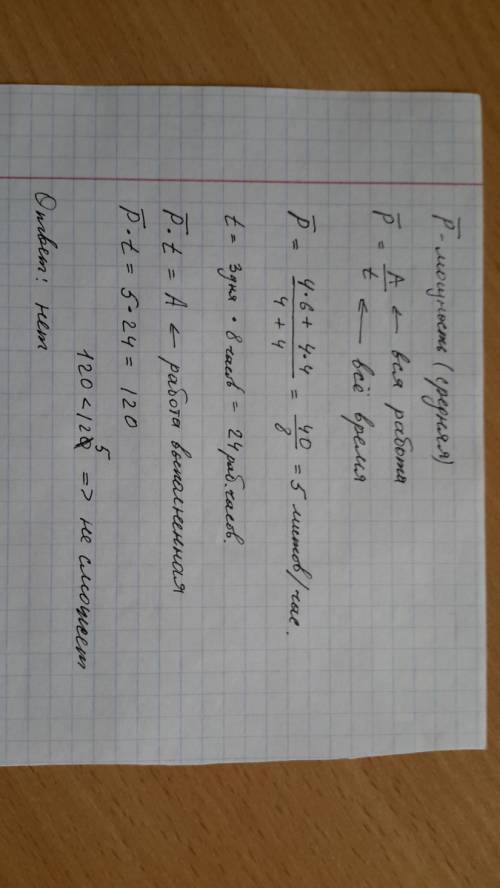 P̅ - мощность (средняя)
P̅ = A/t ← вся работа
← всё время
P̅ = (4·6 + 4·4)/(4 + 4) = 40/8 = 5 листов/час.
t = 3 дня · 8 часов = 24 раб. часов.
P̅·t = A ← работа выполненная
P̅·t = 5·24 = 120
120 < 125 => не сможет
Ответ: нет